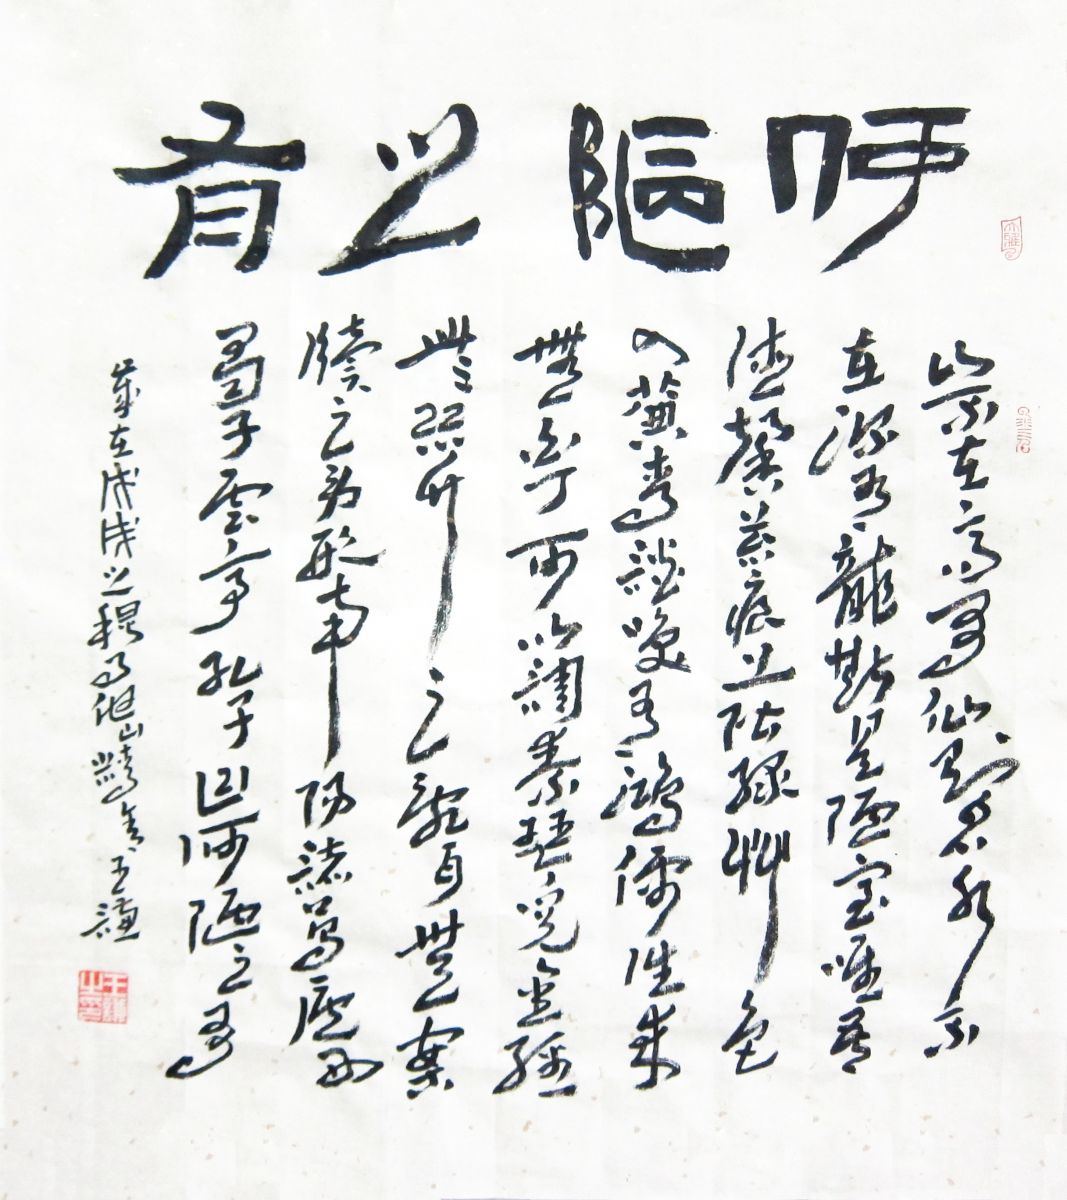 何陋之有
山不在高有仙則名水不
在深有龍斯是陋室唯吾
德馨苔痕上階綠艸色
入簾青談笑有鴻儒往來
無白丁可以調素琴閱金經
無絲竹之亂耳無案
牘之勞形南陽諸葛廬西
蜀子雲亭孔子曰何陋之有
歲在戊戌之 山 王謙
王謙之印